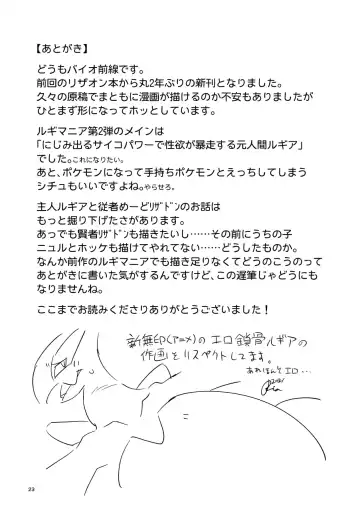 【あとがき】
どうもバイオ前線です。
前回のリザオン本から丸2年ぶりの新刊となりました。
久々の原稿でまともに漫画が描けるのか不安もありましたが
ひとまず形になってホッとしています。
ルギマニア第2弾のメインは
「にじみ出るサイコパワーで性欲が暴走する元人間ルギア」
でした。これになりたい。
あと、ポケモンになって手持ちポケモンとえっちしてしまう
シチュもいいですよね。やらせろ。
主人ルギアと従者めーどﾘｻﾞﾄﾞﾝのお話は
もっと掘り下げたさがあります。
あっでも賢者ﾘｻﾞﾄﾞﾝも描きたいし……その前にうちの子
ニュルとホッケも描けてやれてない……どうしたものか。
なんか前作のルギマニアでも描き足りなくてどうのこうのって
あとがきに書いた気がするんですけど、この遅筆じゃどうにも
なりませんね。
ここまでお読みくださりありがとうございました！
新無印(アニメ)の エロ鎖骨ルギアの
作画をリスペクトしてます。
あれほんとエロ…
23